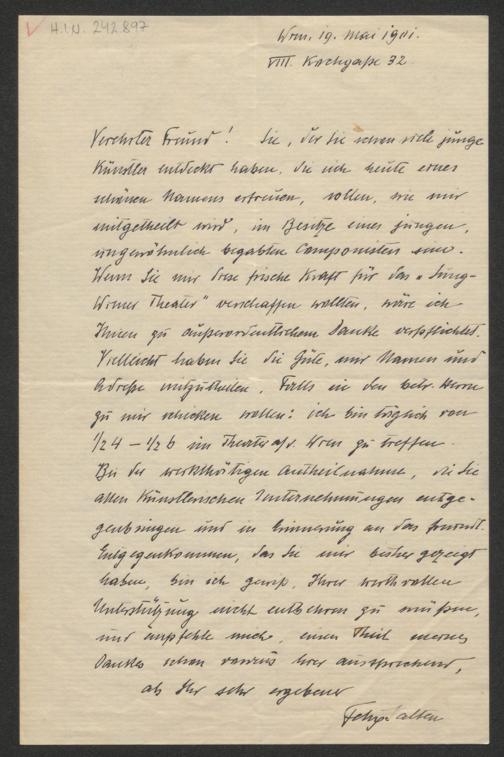 H.I.N. 242.897
Wien, 19. Mai 1901.
VIII. Kochgaße 32
Verehrter Freund! Sie, der Sie schon viele junge
Künstler entdeckt haben, die sich heute eines
schönen Namens erfreuen, sollen, wie mir
mitgetheilt wird, im Besitze eines jungen,
ungewöhnlich begabten Componisten sein.
Wenn Sie mir diese frische Kraft für das „Jung-
Wiener Theater" verschaffen wollten, wäre ich
Ihnen zu außerordentlichem Danke verpflichtet.
Vielleicht haben Sie die Güte, mir Namen und
Adreße mitzutheilen, falls Sie den betr. Herrn
zu mir schicken wollen: ich bin täglich von
1/2 4 – 1/2 6 im Theater a/d. Wien zu treffen.
Bei der werkthätigen Antheilnahme, die Sie
allen künstlerischen Unternehmungen entge-
genbringen und in Erinnerung an das freundl.
Entgegenkommen, das Sie mir bisher gezeigt
haben, bin ich gewiß, Ihrer werthvollen
Unterstützung nicht entbehren zu müßen,
und empfehle mich, einen Theil meines
Dankes schon voraus hier aussprechend,
als Ihr sehr ergebener
Felix Salten